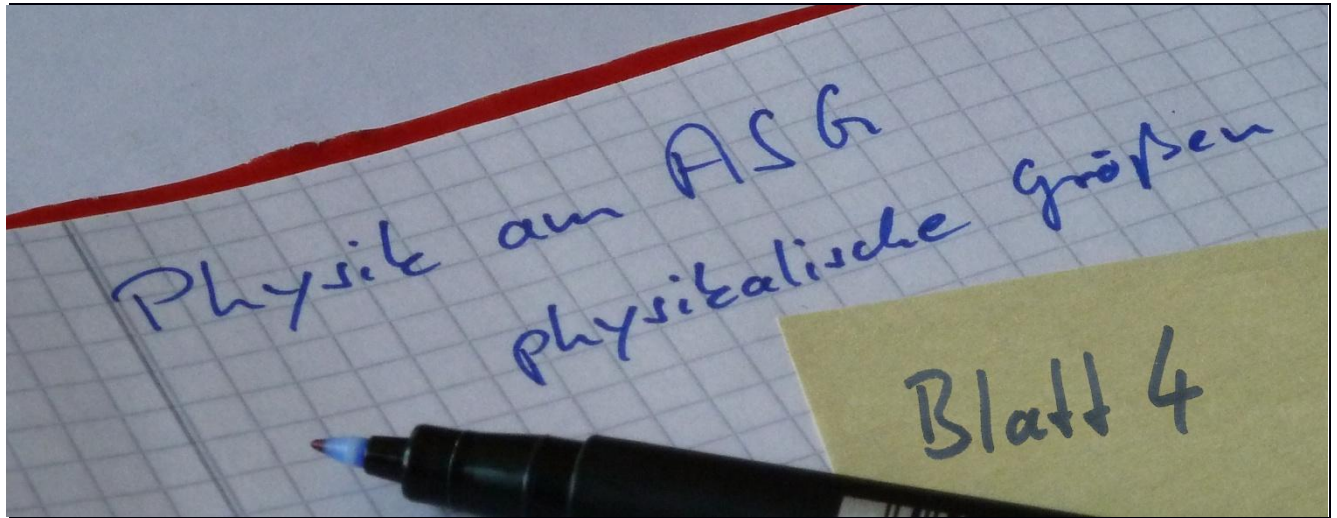 Physik am ASG
physikalische Größen
Blatt 4